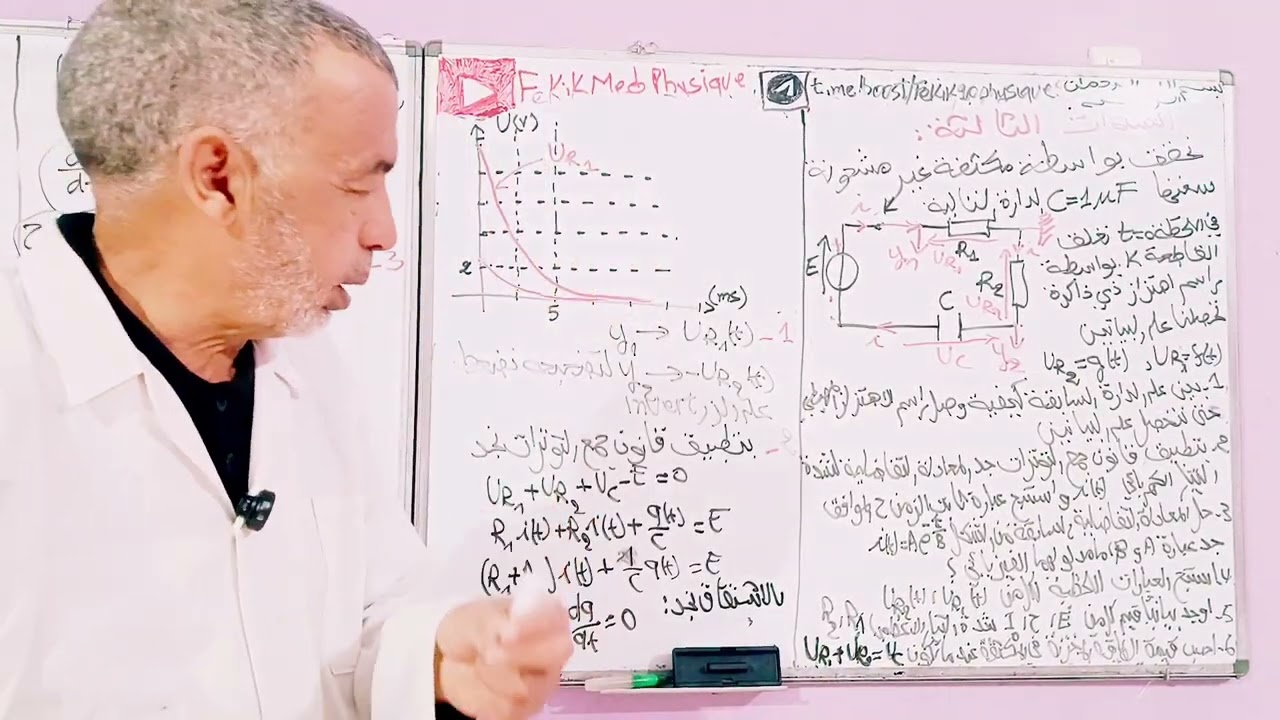 FekiK Med Physique
بسم الله الرحمن الرحيم
التمرين الثالث:
نحقق بواسطة مكثفة غير مشحونة
سعتها C=1µF الدارة التالية
في اللحظة t=0 نغلق
القاطعة K بواسطة
راسم اهتزاز ذي ذاكرة
تحصلنا على البيانين
UR2=g(t) , UR1=f(t)
1- بين على الدارة السابقة كيفية وصل راسم الاهتزاز المهبطي
حتى نتحصل على البيانين
2- بتطبيق قانون جمع التوترات جد المعادلة التفاضلية لشدة
التيار الكهربائي i(t) واستنتج عبارة ثابت الزمن τ الموافق
3- حل المعادلة التفاضلية السابقة من الشكل
جد عبارة A و B وما مدلولهما الفيزيائي؟
4- استنتج العبارات اللحظية للزمن UR1(t) , UR2(t)
5- اوجد بيانيا قيم كل من E, τ, I
6- احسب قيمة الطاقة المخزنة في المكثفة عندما تكون UR1+UR2=
E
R1
UR1
R2
UR2
C
UC
i
y1
y2
U(V)
UR1
2
5
(ms)
y1 → UR1(t) -1
y2 → -UR2(t)
على الزر invert
2- بتطبيق قانون جمع التوترات نجد
UR1+UR2+UC-E=0
R1i(t)+R2i(t)+q(t)/C=E
i(t)+1/C q(t)=E
بالاشتقاق نجد:
dq/dt=0